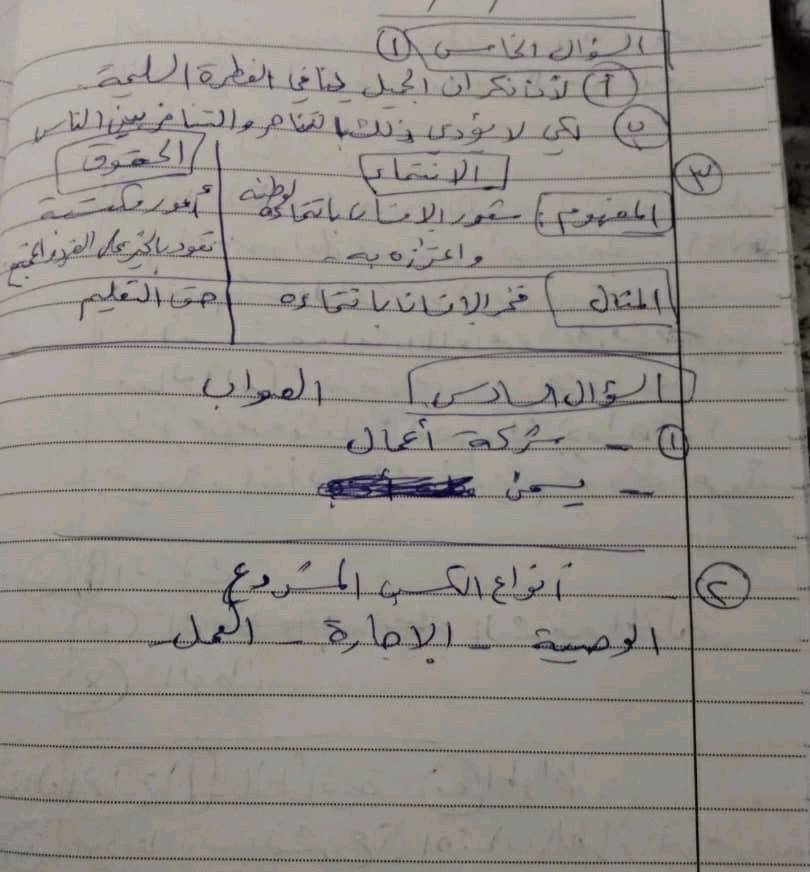 السؤال الخامس ①
أ لأن نكران الجميل ينافي الفطرة السليمة
ب لكي لا يؤدي ذلك بالتناحر والتنافر بين الناس
③ الانتماء الحقوق
المفهوم: شعور الإنسان بانتمائه لوطنه أمور مكتسبة
واعتزازه به. تعود بالخير على الفرد والمجتمع
المثال فخر الإنسان بانتماءه حق التعليم
السؤال السادس الصواب
① - شركة أعمال
- يسعى
② أنواع الكسب المشروع
الوصية - الإجارة - العمل